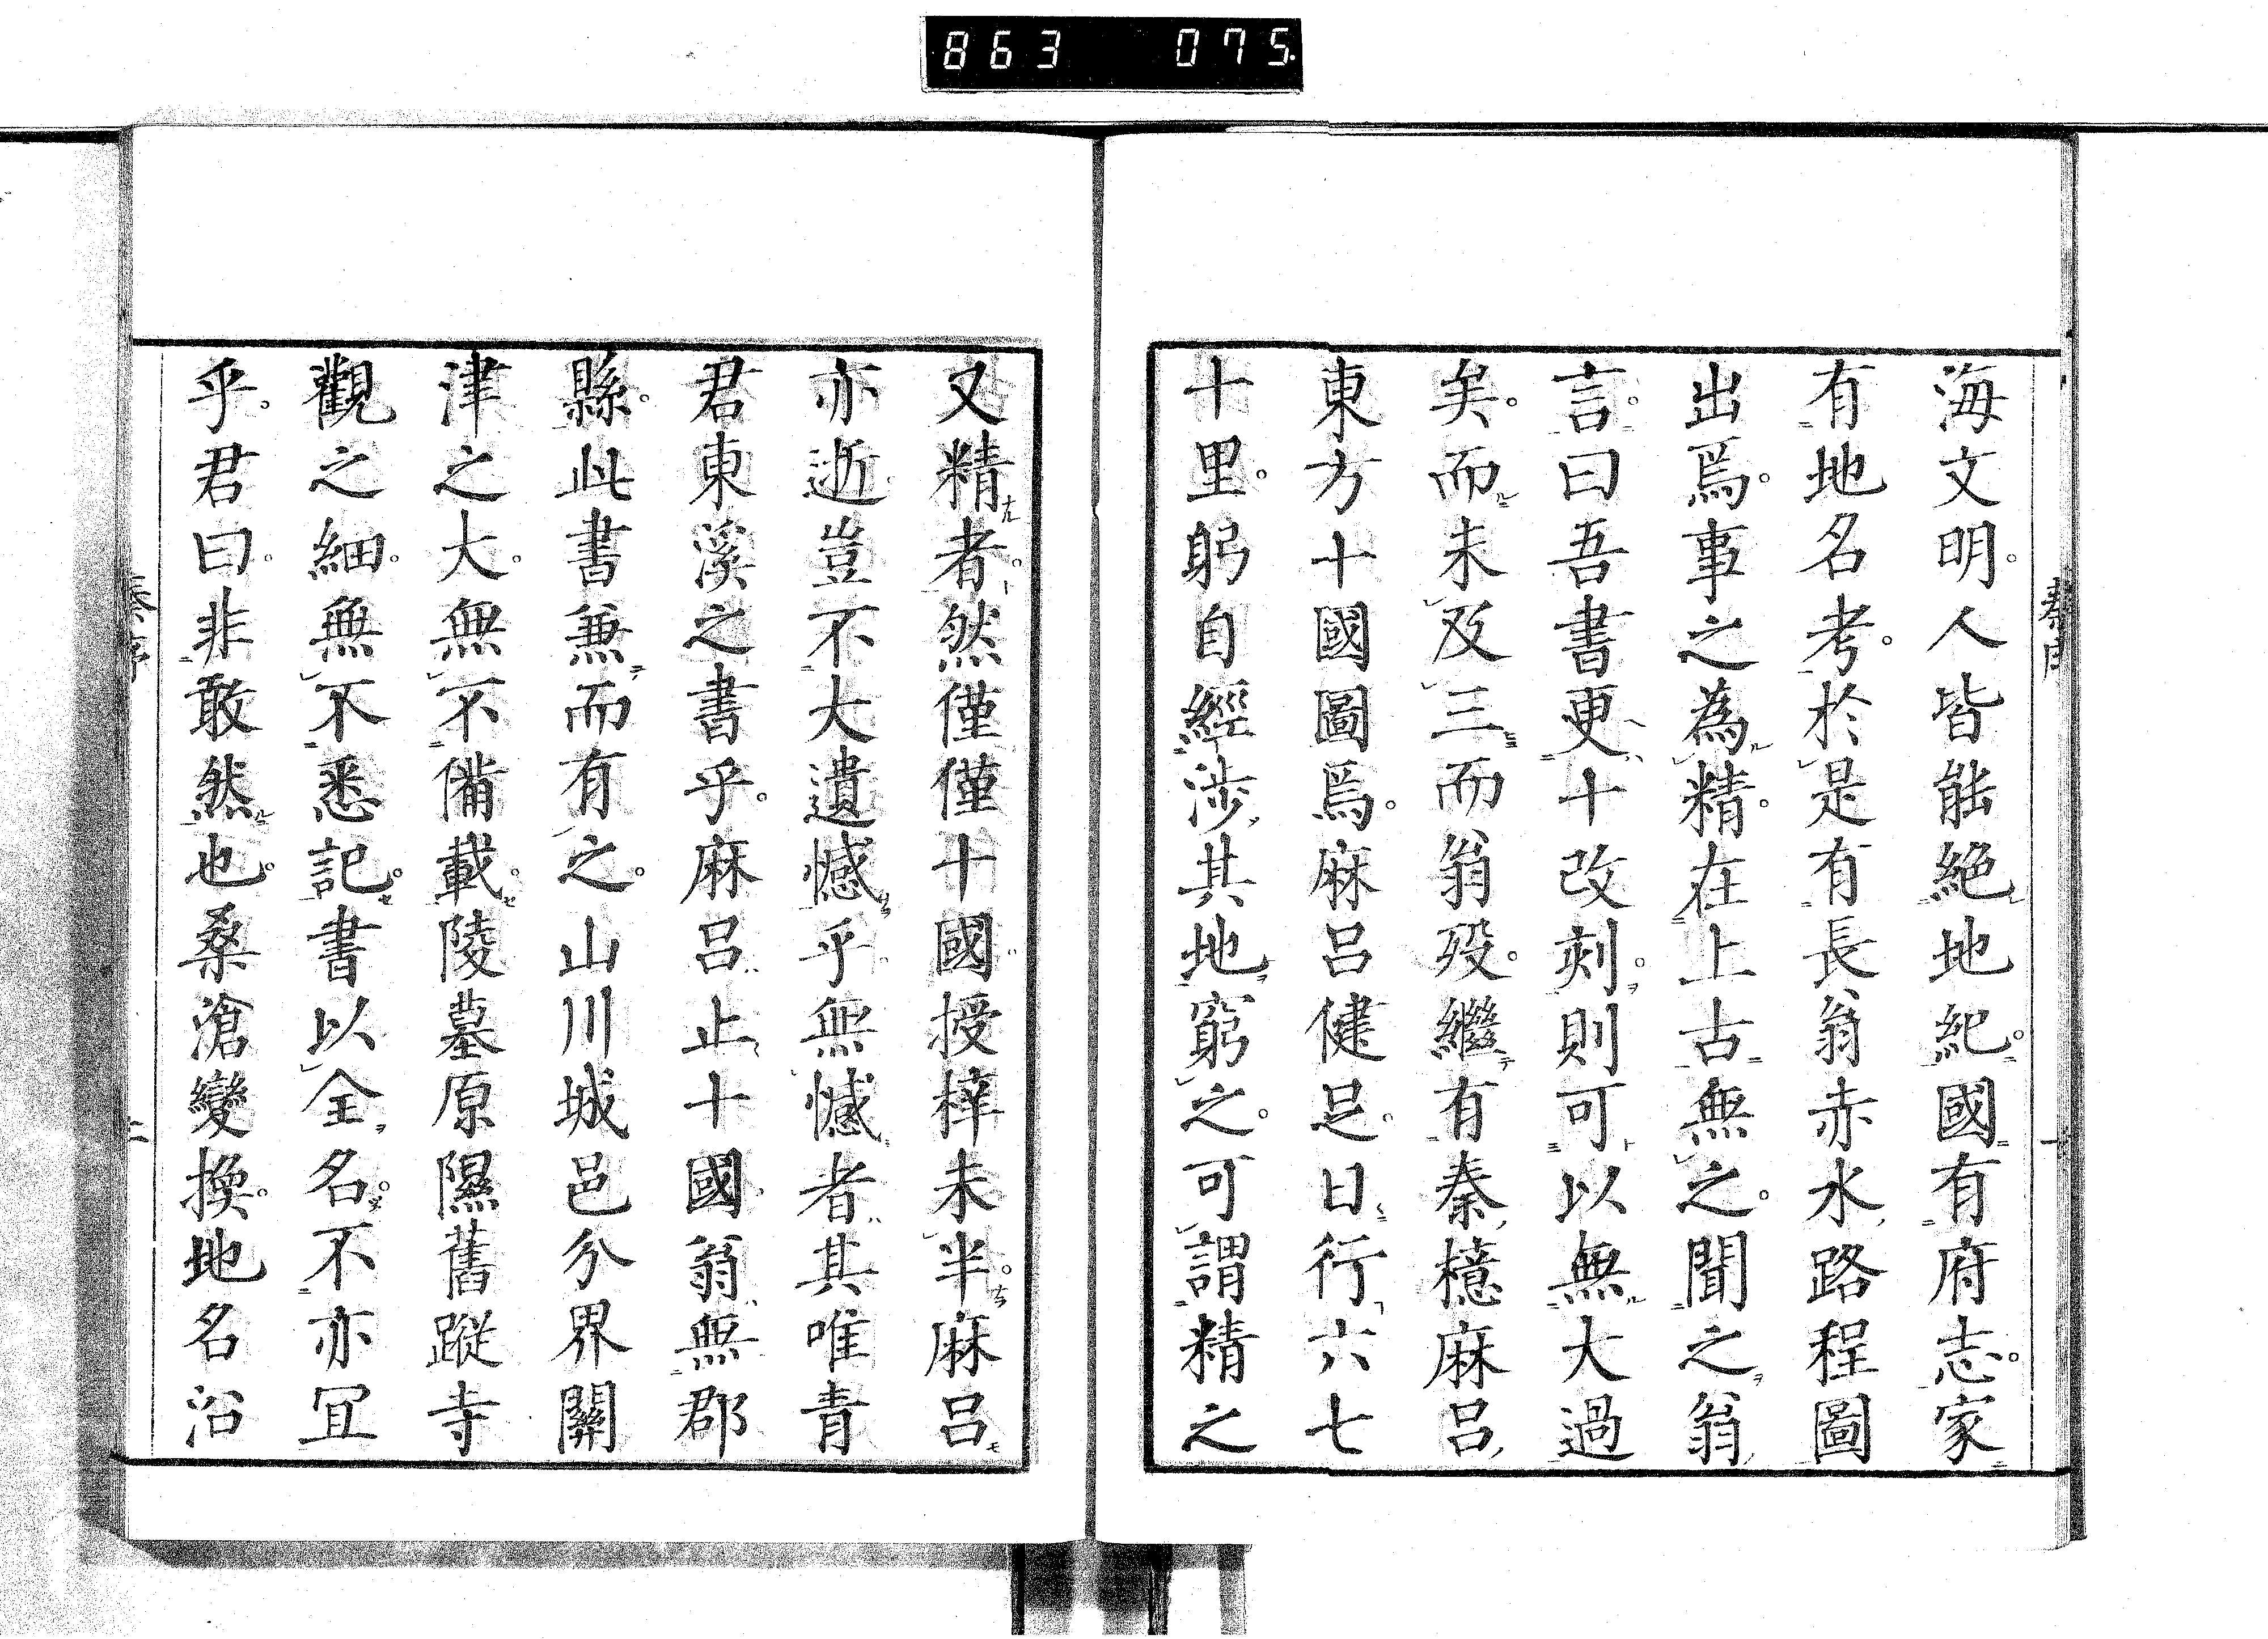 863 075.
海文明。人皆能絶地紀。國有府志。家
有地名考。於是有長翁赤水路程圖
出焉。事之為精。在上古無之。聞之翁
言。曰吾書更十改刻。則可以無大過
矣。而未及三而翁歿。繼有秦檍麻呂
東方十國圖焉。麻呂健足。日行六七
十里。躬自經渉其地窮之。可謂精之
又精者。然僅僅十國。授梓未半。麻呂
亦逝。豈不大遺憾乎。無憾者其唯青
君東溪之書乎。麻呂止十國。翁無郡
縣。此書兼而有之。山川城邑分界關
津之大。無不備載。陵墓原隰舊蹤寺
觀之細。無不悉記。書以全名。不亦冝
乎。君曰。非敢然也。桑滄變換。地名沿